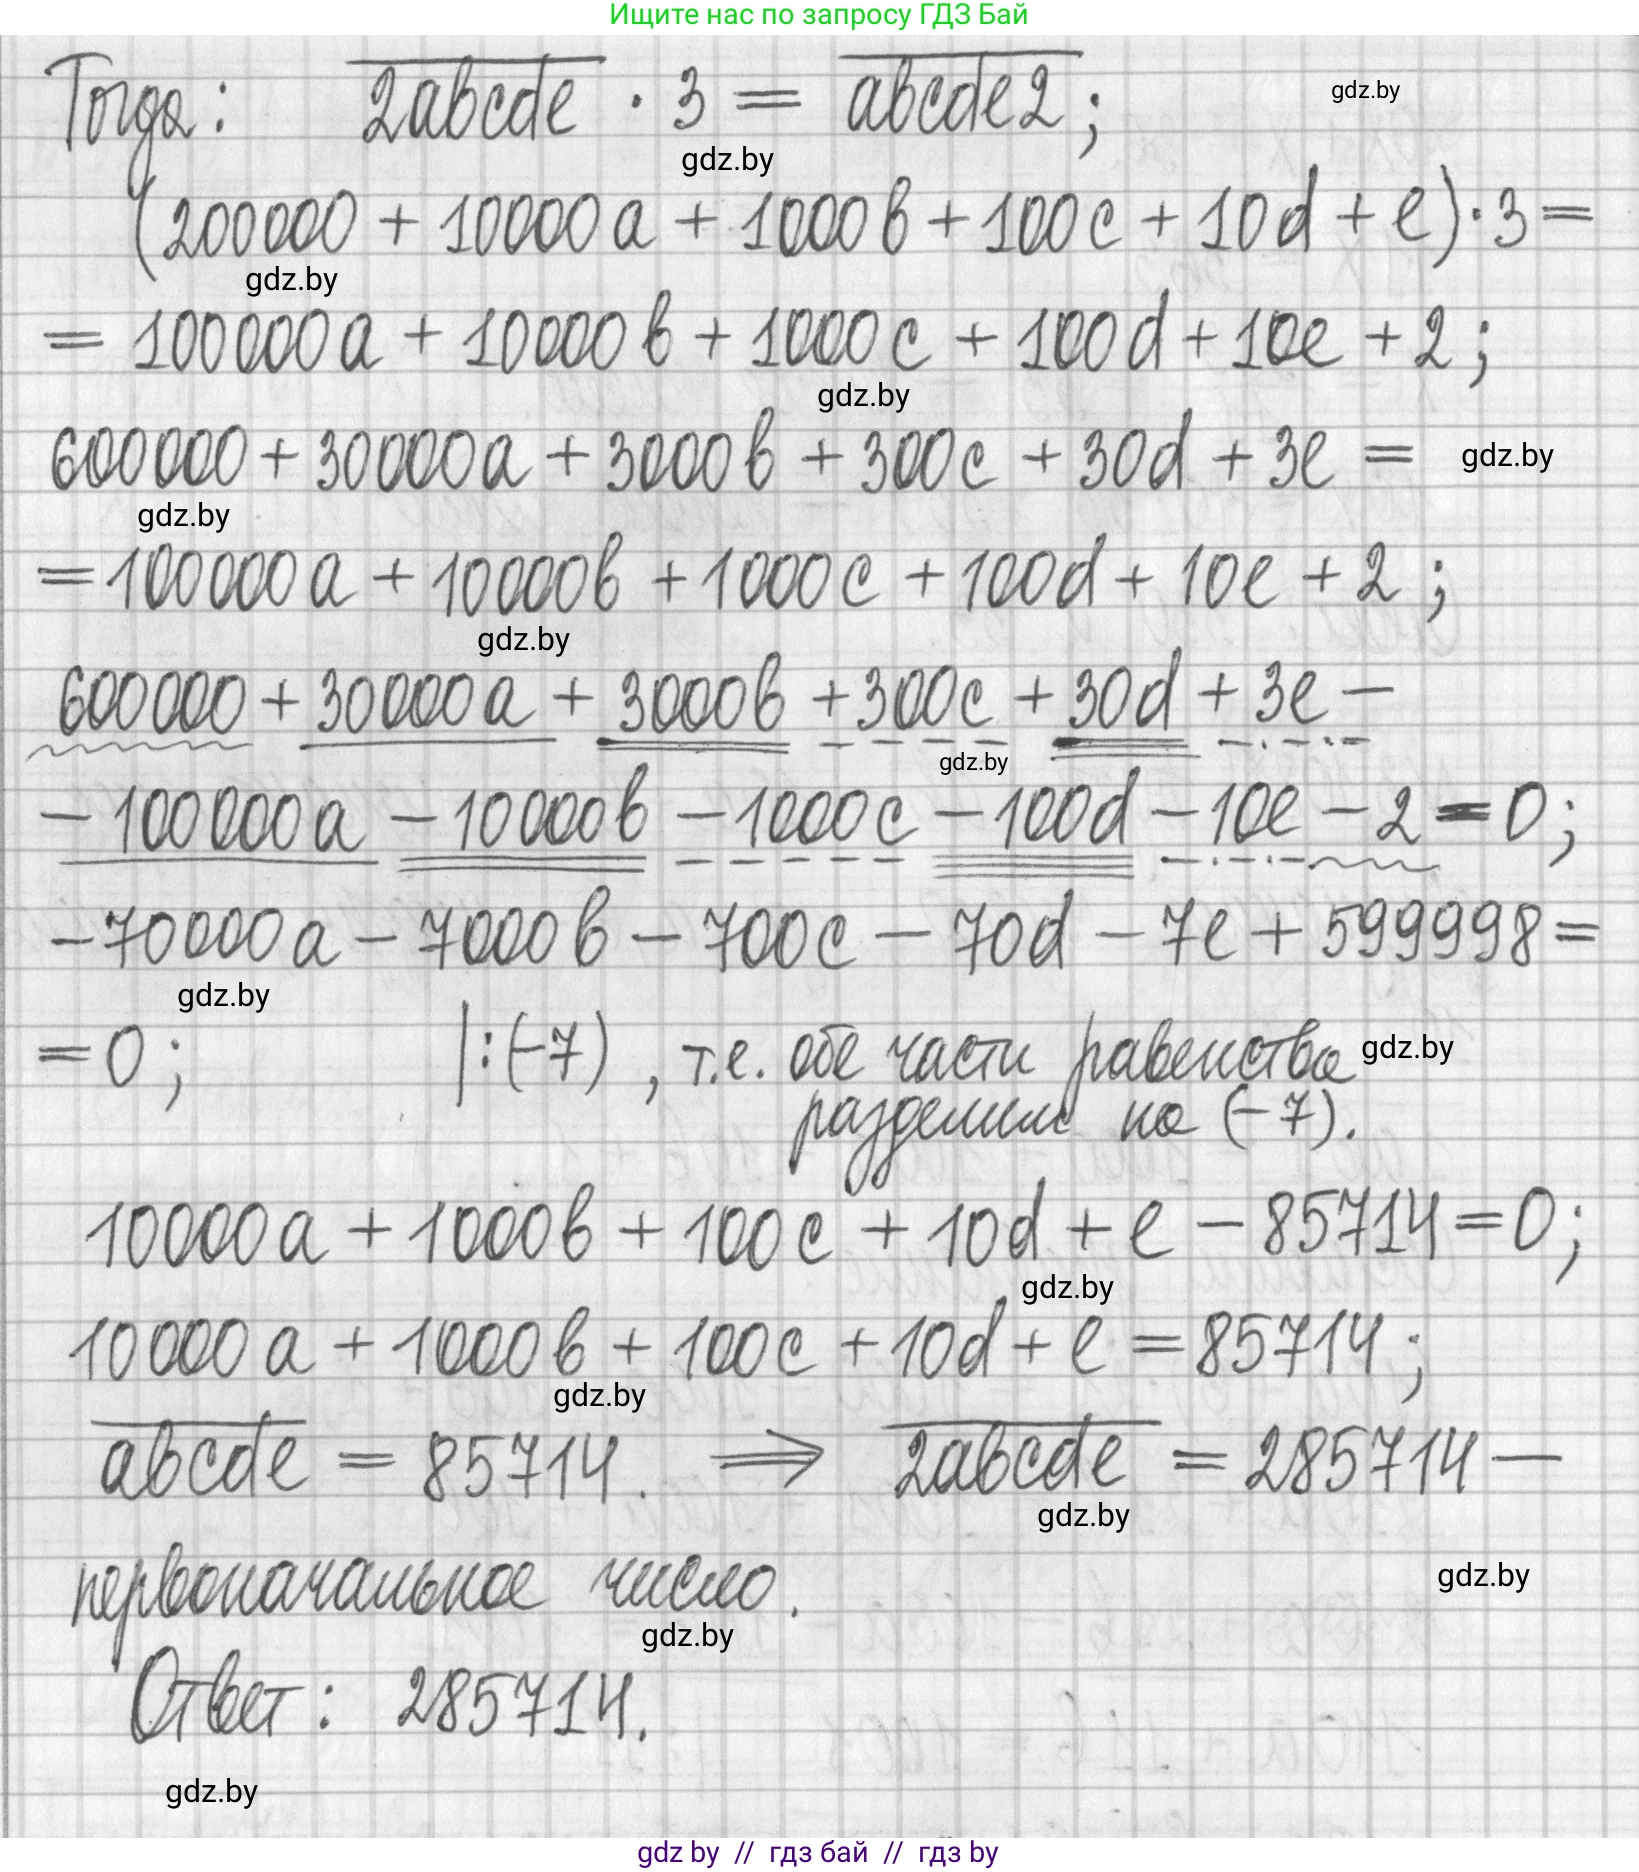 Ищите нас по запросу ГДЗ Бай
Тогда: 2abcde · 3 = abcde2; gdz.by
gdz.by
(200000 + 10000a + 1000b + 100c + 10d + e) · 3 =
gdz.by
= 100000a + 10000b + 1000c + 100d + 10e + 2;
gdz.by
600000 + 30000a + 3000b + 300c + 30d + 3e = gdz.by
gdz.by
= 100000a + 10000b + 1000c + 100d + 10e + 2;
gdz.by
600000 + 30000a + 3000b + 300c + 30d + 3e –
gdz.by
– 100000a – 10000b – 1000c – 100d – 10e – 2 = 0;
– 70000a – 7000b – 700c – 70d – 7e + 599998 =
gdz.by
= 0; |:(–7), т.е. обе части равенства gdz.by
разделим на (–7).
10000a + 1000b + 100c + 10d + e – 85714 = 0;
gdz.by
10000a + 1000b + 100c + 10d + e = 85714;
gdz.by
abcde = 85714. ⇒ 2abcde = 285714 –
gdz.by
первоначальное число. gdz.by
gdz.by
Ответ: 285714.
gdz.by
gdz by // гдз бай // гдз by